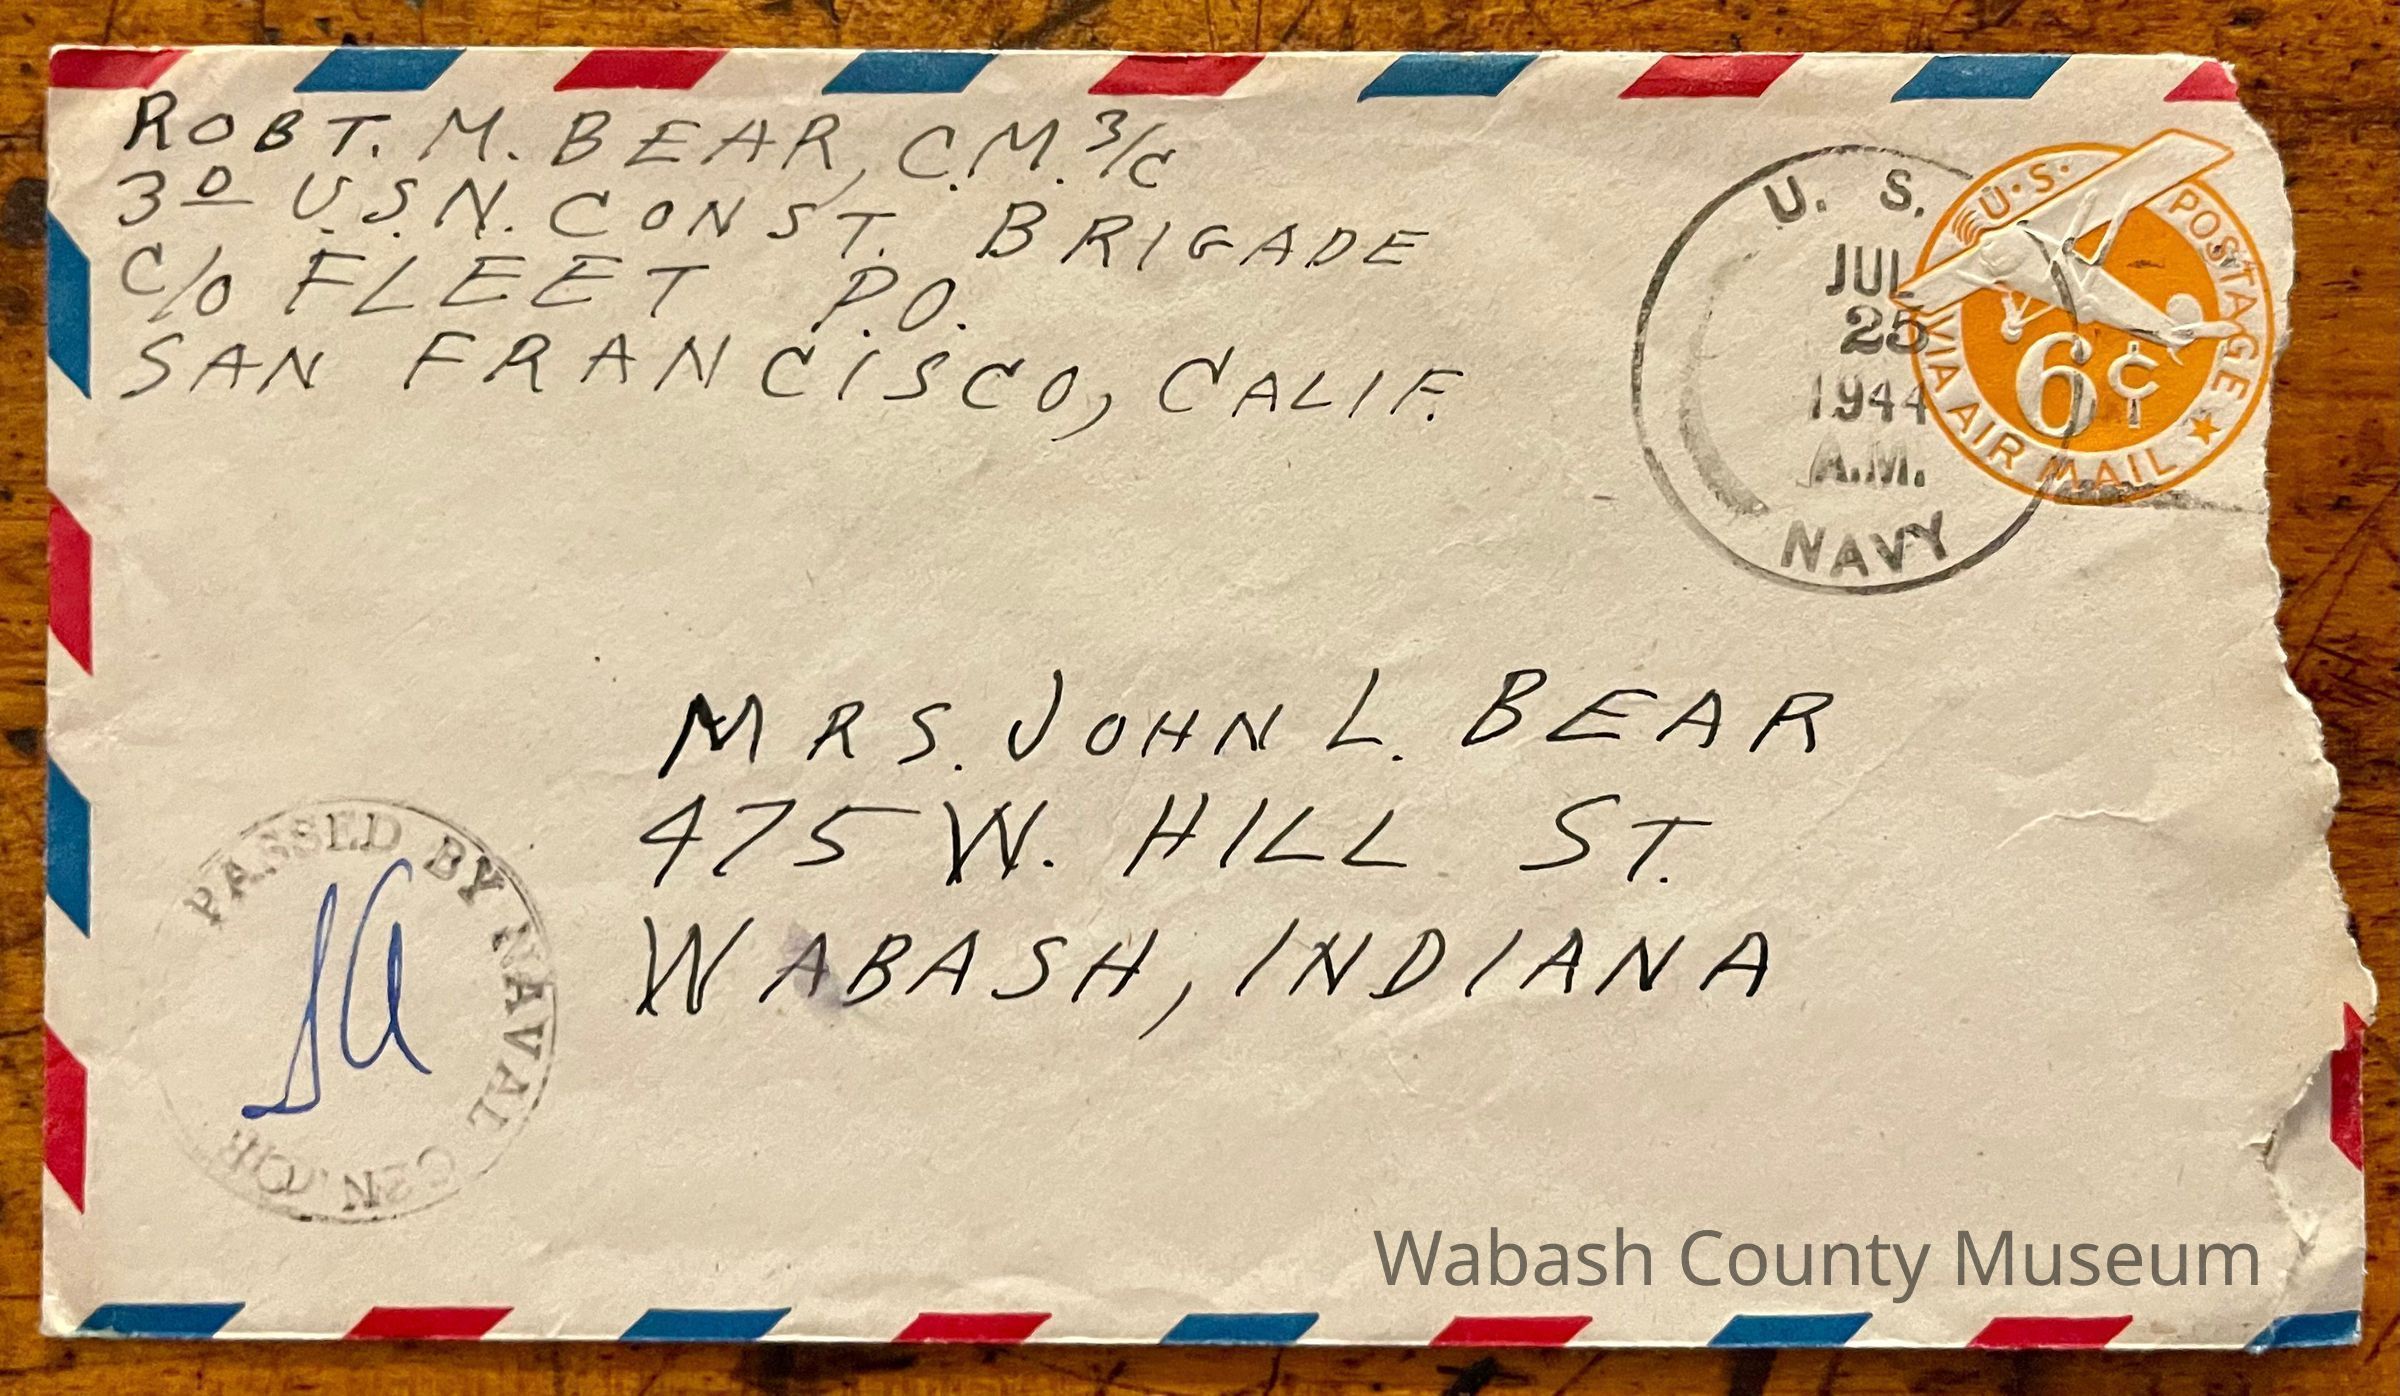 ROBT. M. BEAR, C.M. 3/C
3D U.S.N. CONST. BRIGADE
C/O FLEET P.O.
SAN FRANCISCO, CALIF.
U. S.
JUL
25
1944
A.M.
NAVY
U.S. POSTAGE
6¢
VIA AIR MAIL
MRS. JOHN L. BEAR
475 W. HILL ST.
WABASH, INDIANA
PASSED BY NAVAL CENSOR
Wabash County Museum